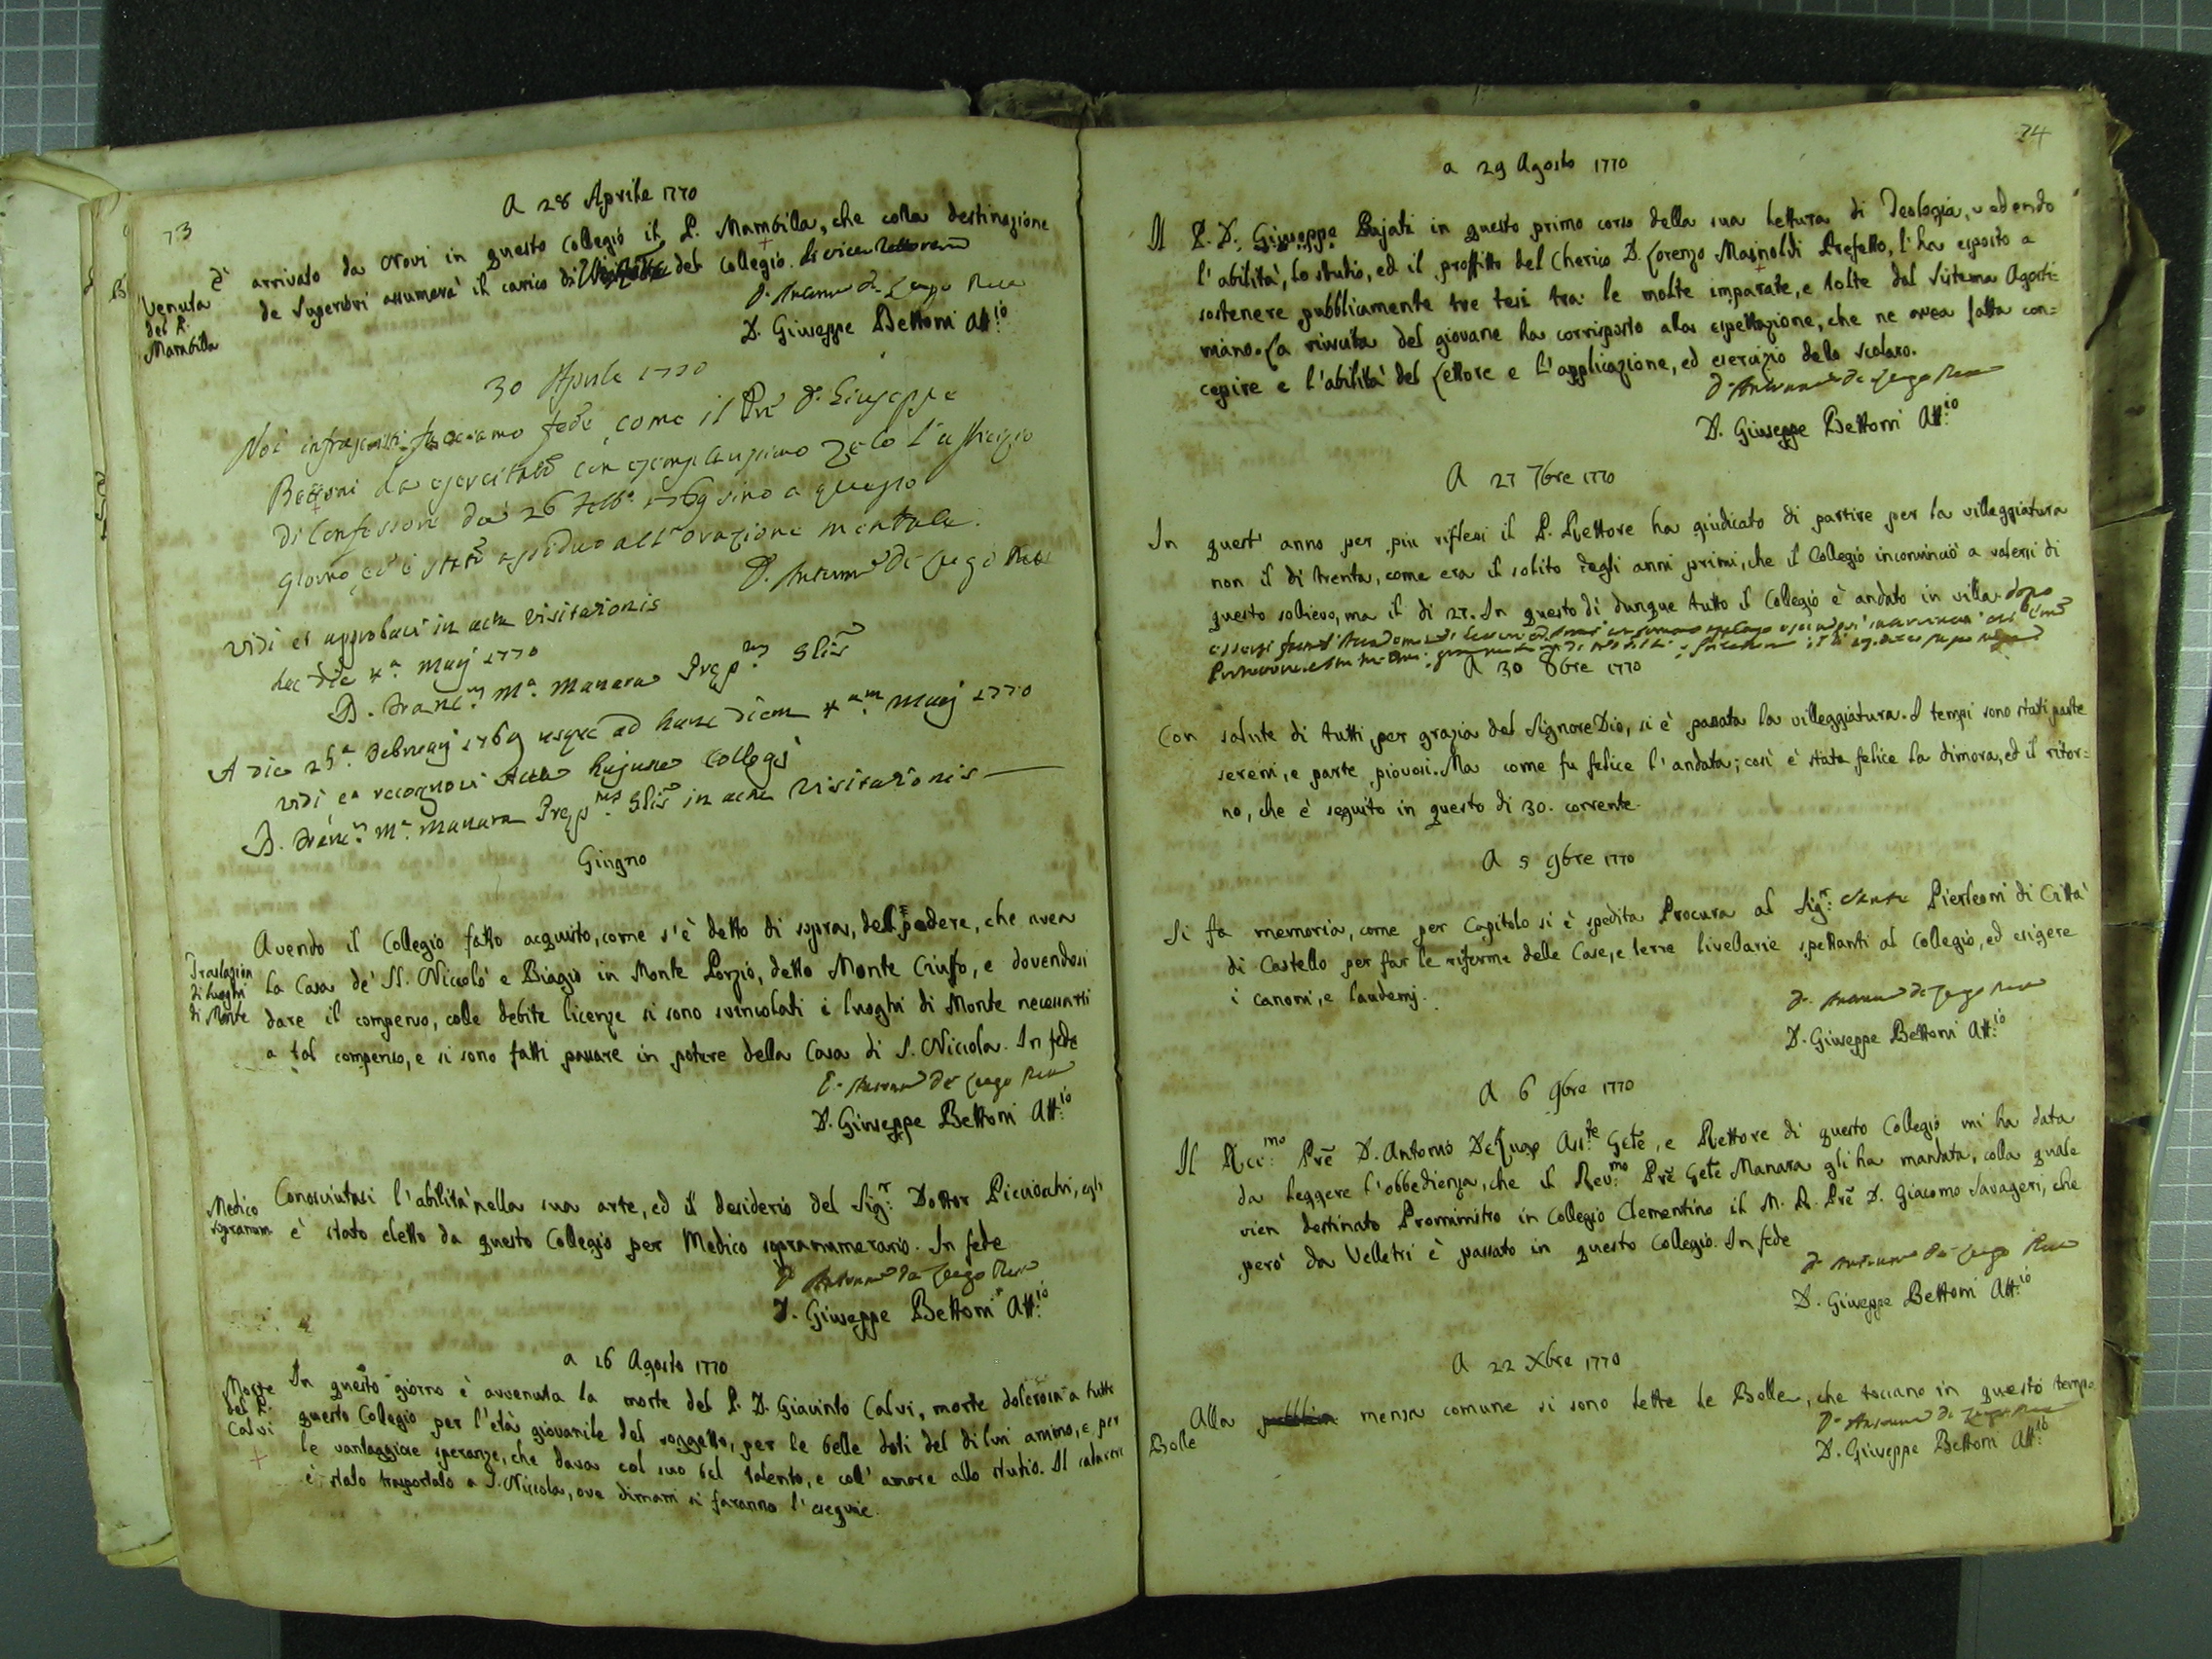 73
A 28 Aprile 1770
Venuta
del P.
Mambilla
È arrivato da Novi in questo Collegio il P. Mambilla, che colla destinazione
de Superiori assumerà il carico di del Collegio. di vice Rettore
D. Antonio de Lugo Ret.
D. Giuseppe Bettoni Att.io
30 Aprile 1770
Noi infrascritti facciamo fede, come il Pre D. Giuseppe
Bettoni ha esercitato con esemplarissimo zelo l'uffizio
di Confessore da' 26 1769 sino a questo
giorno, ed è stato assiduo all'orazione mentale.
D. Antonio De Lugo Ret.
Vidi et approbavi in actu visitationis
hac die 4.a Maij 1770
D. Franc.us M.a Manara Prep.us Glis
A die 25.a Februarij 1769 usque ad hanc diem 4.am Maij 1770
vidi et recognovi Acta hujus Collegij
D. Franc.us M.a Manara Prep.us Glis in actu Visitationis
Giugno
Traslazion
di luoghi
di Monte
Avendo il Collegio fatto acquisto, come s'è detto di sopra, del podere, che avea
la Casa de' SS. Niccolò e Biagio in Monte Porzio, detto Monte Ciuffo, e dovendosi
dare il compenso, colle debite licenze si sono svincolati i luoghi di Monte necessarii
a tal compenso, e si sono fatti passare in potere della Casa di S. Niccola. In fede
D. Antonio de Lugo Ret.
D. Giuseppe Bettoni Att.io
Medico
sopranum
Conosciutasi l'abilità nella sua arte, ed il desiderio del Sig.r Dottor egli
è stato eletto da questo Collegio per Medico sopranumerario. In fede
D. Antonio de Lugo Ret.
D. Giuseppe Bettoni Att.io
a 16 Agosto 1770
Morte
del P.
Calvi
In questo giorno è avvenuta la morte del P. D. Giacinto Calvi, morte dolorosa a tutto
questo Collegio per l'età giovanile del soggetto, per le belle doti del di lui animo, e per
le vantaggiose speranze, che dava col suo bel talento, e coll'amore allo studio. Il cadavere
è stato trasportato a S. Niccola, ove dimani si faranno l'esequie.
74
a 29 Agosto 1770
Il P. D. Giuseppe Pujati in questo primo corso della sua lettura di Teologia, vedendo
l'abilità, lo studio, ed il proffitto del Cherico D. Lorenzo Masnoldi Prefetto, l'ha esposto a
sostenere pubblicamente tre tesi tra le molte imparate, e tolte dal Sistema Agosti=
niano. La riuscita del giovane ha corrisposto alla espettazione, che ne avea fatta con=
cepire e l'abilità del Lettore e l'applicazione, ed esercizio dello scolaro.
D. Antonio de Lugo Ret.
D. Giuseppe Bettoni Att.io
A 27 7bre 1770
In quest'anno per più riflessi il P. Rettore ha giudicato di partire per la villeggiatura
non il dì trenta, come era il solito degli anni primi, che il Collegio incominciò a valersi di
questo sollievo, ma il dì 27. In questo dì dunque tutto il Collegio è andato in villa. dopo
essersi
A 30 8bre 1770
Con salute di tutti, per grazia del Signore Dio, si è passata la villeggiatura. I tempi sono stati parte
sereni, e parte piovosi. Ma come fu felice l'andata; così è stata felice la dimora, ed il ritor=
no, che è seguito in questo dì 30. corrente.
A 5 9bre 1770
Si fa memoria, come per Capitolo si è spedita Procura al Sig.r Pierleoni di Città
di Castello per far le riforme delle Case, e terre livellarie spettanti al Collegio, ed esigere
i canoni, e laudemj.
D. Antonio de Lugo Ret.
D. Giuseppe Bettoni Att.io
A 6 9bre 1770
Il Rev.mo Prē D. Antonio De Lugo Ass.te Gēle, e Rettore di questo Collegio mi ha data
da leggere l'obbedienza, che il Rev.mo Prē Gēle Manara gli ha mandata, colla quale
vien destinato Prominiſtro in Collegio Clementino il M. R. Prē D. Giacomo Savageri, che
però da Velletri è passato in questo Collegio. In fede
D. Antonio de Lugo Ret.
D. Giuseppe Bettoni Att.io
A 22 Xbre 1770
Bolle
Alla mensa comune si sono lette le Bolle, che toccano in questo tempo
D. Antonio de Lugo Ret.
D. Giuseppe Bettoni Att.io